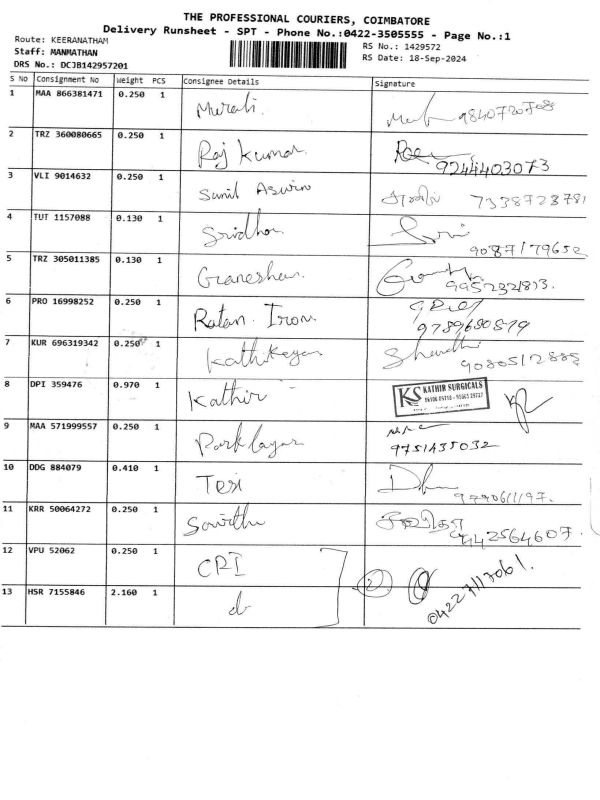 THE PROFESSIONAL COURIERS, COIMBATORE
Delivery Runsheet - SPT - Phone No.:0422-3505555 - Page No.:1
Route: KEERANATHAM
RS No.: 1429572
Staff: MANMATHAN
RS Date: 18-Sep-2024
DRS No.: DCJB142957201
S No Consignment No Weight PCS Consignee Details Signature
1 MAA 866381471 0.250 1 Murali.
2 TRZ 360080665 0.250 1 Raj Kumar 9244403073
3 VLI 9014632 0.250 1 Sunil Aswin 7338723781
4 TUT 1157088 0.130 1 Sridhar 9087179652
5 TRZ 305011385 0.130 1 Ganeshan
6 PRO 16998252 0.250 1 Ratan Iron
7 KUR 696319342 0.250 1 Kathikeyan
8 DPI 359476 0.970 1 Kathir KS KATHIR SURGICALS
9 MAA 571999557 0.250 1 9751435032
10 DDG 884079 0.410 1
11 KRR 50064272 0.250 1
12 VPU 52062 0.250 1 CRI 2
13 HSR 7155846 2.160 1 0422 7117061.